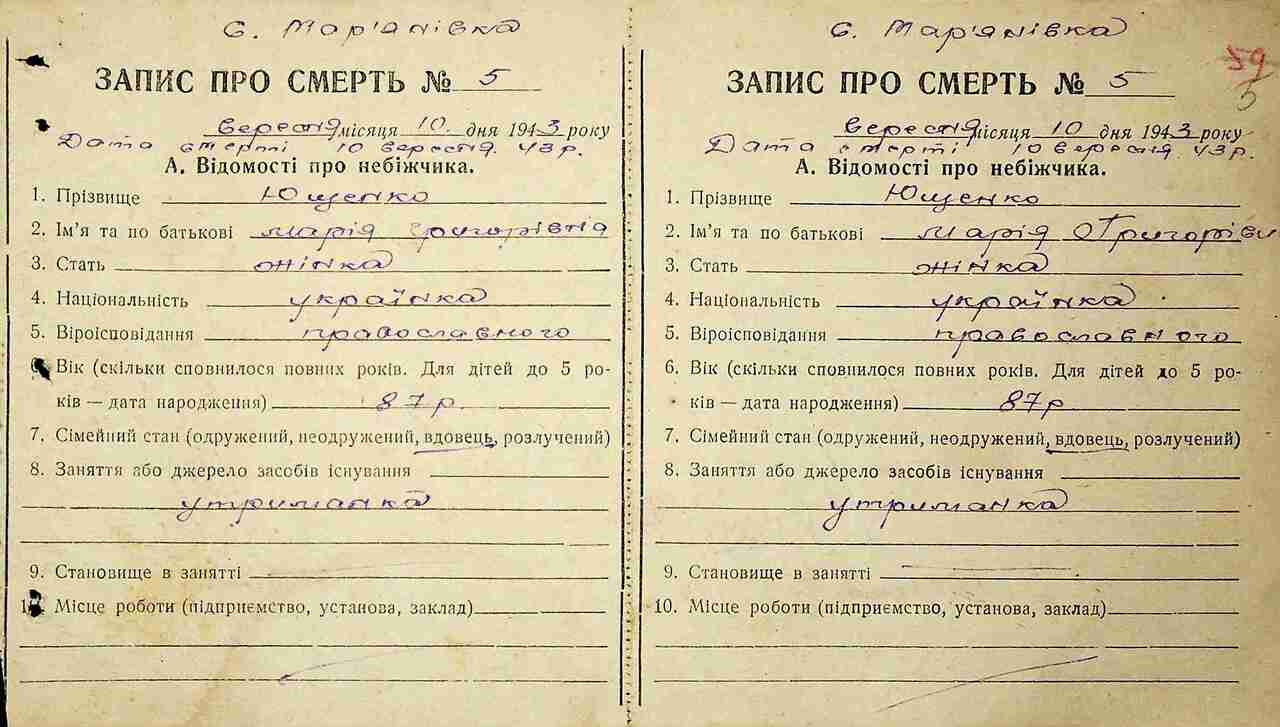 с. Мар'янівка
ЗАПИС ПРО СМЕРТЬ № 5
вересня місяця 10. дня 1943 року
Дата смерті 10 вересня. 43 р.
А. Відомості про небіжчика.
1. Прізвище Ющенко
2. Ім'я та по батькові Марія Григорівна
3. Стать жінка
4. Національність українка
5. Віроісповідання православного
6. Вік (скільки сповнилося повних років. Для дітей до 5 ро-
ків — дата народження) 87 р.
7. Сімейний стан (одружений, неодружений, вдовець, розлучений)
8. Заняття або джерело засобів існування
утриманка
9. Становище в занятті
10. Місце роботи (підприємство, установа, заклад)
с. Мар'янівка
59
5
ЗАПИС ПРО СМЕРТЬ № 5
вересня місяця 10 дня 1943 року
Дата смерті 10 вересня 43 р.
А. Відомості про небіжчика.
1. Прізвище Ющенко
2. Ім'я та по батькові Марія Григорівн
3. Стать жінка
4. Національність українка
5. Віроісповідання православного
6. Вік (скільки сповнилося повних років. Для дітей до 5 ро-
ків — дата народження) 87 р
7. Сімейний стан (одружений, неодружений, вдовець, розлучений)
8. Заняття або джерело засобів існування
утриманка
9. Становище в занятті
10. Місце роботи (підприємство, установа, заклад)